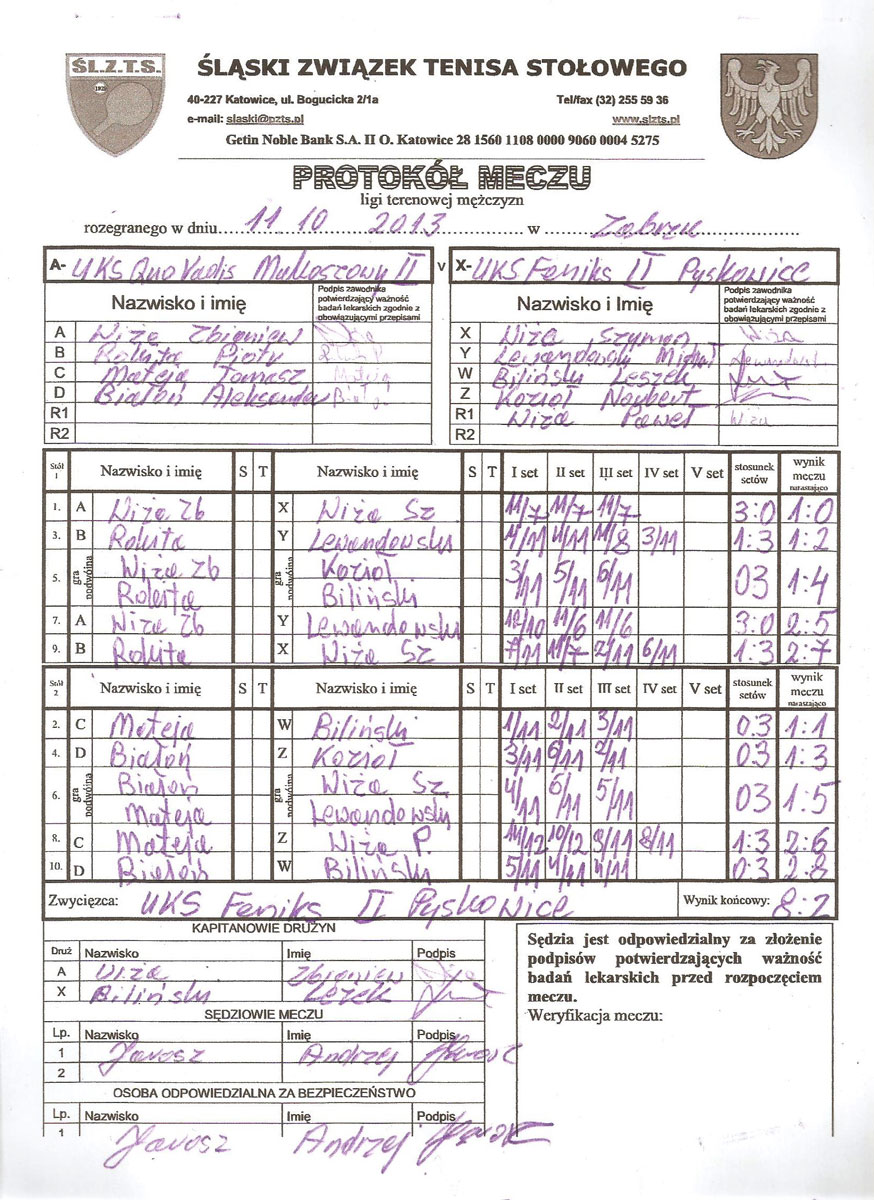 ŚL.Z.T.S.
ŚLĄSKI ZWIĄZEK TENISA STOŁOWEGO
40-227 Katowice, ul. Bogucicka 2/1a Tel/fax (32) 255 59 36
e-mail: slaski@pzts.pl www.slzts.pl
Getin Noble Bank S.A. II O. Katowice 28 1560 1108 0000 9060 0004 5275
PROTOKÓŁ MECZU
ligi terenowej mężczyzn
rozegranego w dniu 11 10 2013 w Zabrzu
A- UKS Quo Vadis II v X- UKS Feniks II Pyskowice
Nazwisko i imię Podpis zawodnika potwierdzający ważność badań lekarskich zgodnie z obowiązującymi przepisami Nazwisko i Imię Podpis zawodnika potwierdzający ważność badań lekarskich zgodnie z obowiązującymi przepisami
A Wiża Zbigniew X Wiża Szymon Wiża
B Rokita Piotr Y Lewandowski Michał
C Mateja Tomasz Mateja W Biliński Leszek
D Białoń Aleksander Z Kozioł Norbert
R1 R1 Wiża Paweł Wiża
R2 R2
Stół 1 Nazwisko i imię S T Nazwisko i imię S T I set II set III set IV set V set stosunek setów wynik meczu narastająco
1. A Wiża Zb X Wiża Sz 11/7 11/7 11/7 3:0 1:0
3. B Rokita Y Lewandowski 4/11 4/11 11/8 3/11 1:3 1:2
5. gra podwójna Wiża Zb gra podwójna Kozioł 3/11 5/11 6/11 03 1:4
Rokita Biliński
7. A Wiża Zb Y Lewandowski 12/10 11/6 11/6 3:0 2:5
9. B Rokita X Wiża Sz 7/11 11/7 2/11 6/11 1:3 2:7
Stół 2 Nazwisko i imię S T Nazwisko i imię S T I set II set III set IV set V set stosunek setów wynik meczu narastająco
2. C Mateja W Biliński 1/11 2/11 3/11 0:3 1:1
4. D Białoń Z Kozioł 3/11 6/11 2/11 0:3 1:3
6. gra podwójna Białoń gra podwójna Wiża Sz 4/11 6/11 5/11 03 1:5
Mateja Lewandowski
8. C Mateja Z Wiża P. 14/12 10/12 9/11 8/11 1:3 2:6
10. D Białoń W Biliński 5/11 4/11 4/11 0:3 2:8
Zwycięzca: UKS Feniks II Pyskowice Wynik końcowy: 8:2
KAPITANOWIE DRUŻYN
Druż Nazwisko Imię Podpis
A Wiża Zbigniew
X Biliński Lezek
SĘDZIOWIE MECZU
Lp. Nazwisko Imię Podpis
1 Jarosz Andrzej
2
OSOBA ODPOWIEDZIALNA ZA BEZPIECZEŃSTWO
Lp. Nazwisko Imię Podpis
1 Jarosz Andrzej
Sędzia jest odpowiedzialny za złożenie
podpisów potwierdzających ważność
badań lekarskich przed rozpoczęciem
meczu.
Weryfikacja meczu: